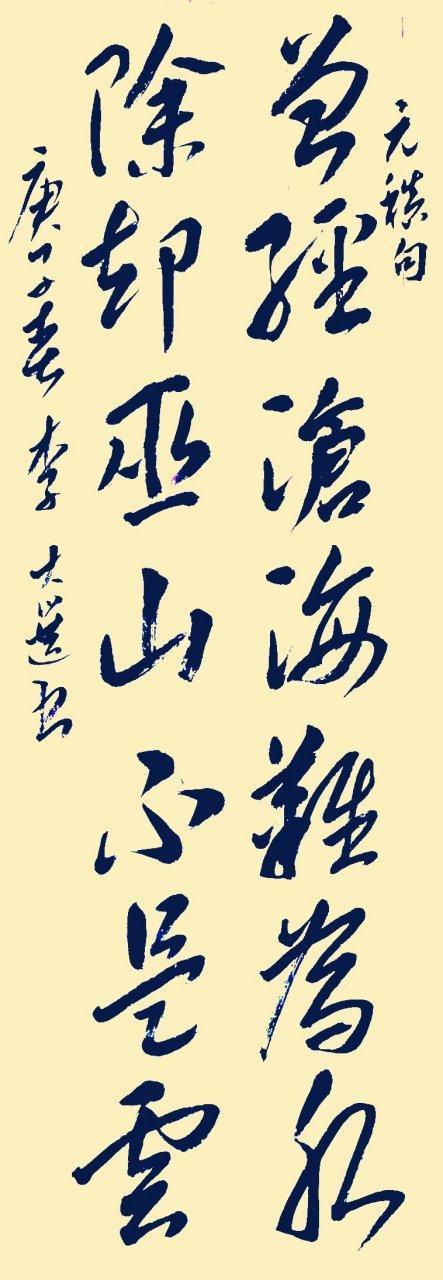 元稹句
曾經滄海難為水
除却巫山不是雲
庚子春 李大選书